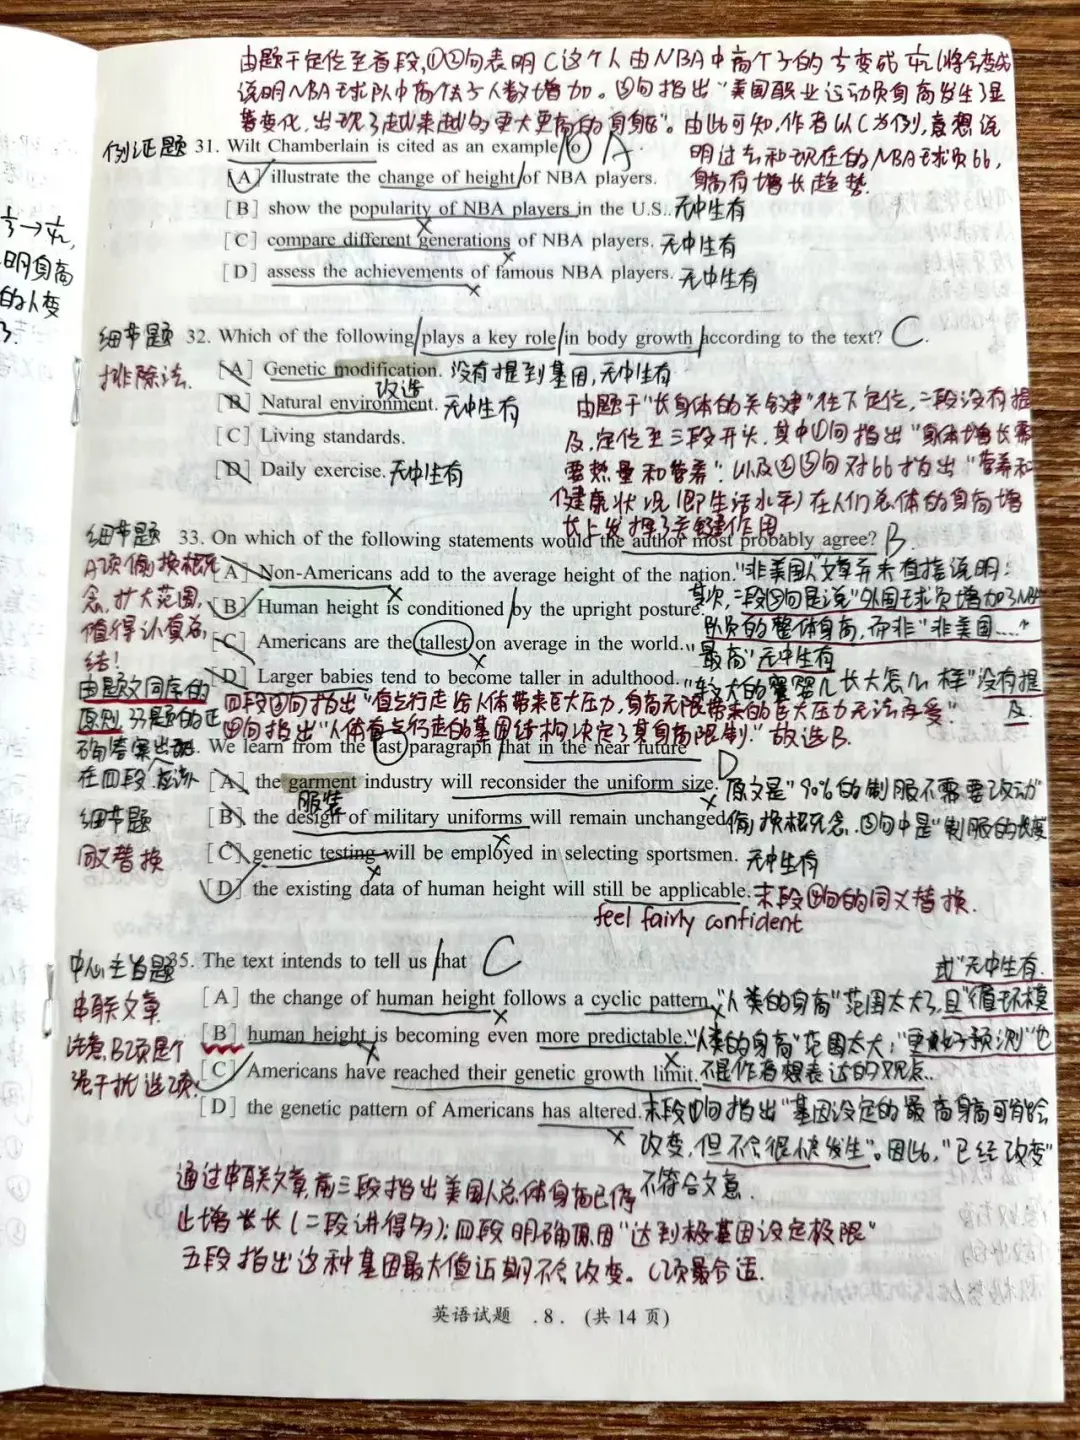 由题干定位至首段,①②句表明C这个人由NBA中高个子的
说明NBA球队中高个子人数增加。④句指出"美国职业运动员身高发生了显
著变化,出现了越来越多的更大更高的身躯"。由此可知,作者以C为例,意想说
例证题 31. Wilt Chamberlain is cited as an example to A
明过去和现在的NBA球员比,
[A] illustrate the change of height of NBA players.
身高有增长趋势.
[B] show the popularity of NBA players in the U.S.. 无中生有
[C] compare different generations of NBA players. 无中生有
明身高
[D] assess the achievements of famous NBA players. 无中生有
细节题 32. Which of the following plays a key role in body growth according to the text? C.
排除法.
[A] Genetic modification. 没有提到基因,无中生有
改造
[B] Natural environment. 无中生有
由题干"长身体的关键"往下定位,二段没有提
[C] Living standards.
及,定位至三段开头,其中①句指出"身体增长需
[D] Daily exercise. 无中生有
要热量和营养".以及④⑤句对比才指出"营养和
健康状况(即生活水平)在人们总体的身高增
长上发挥了关键作用
细节题 33. On which of the following statements would the author most probably agree? B.
A项偷换概念,扩大范围,值得认真总结!
[A] Non-Americans add to the average height of the nation. "非美国人"文章并未直接说明;
[B] Human height is conditioned by the upright posture.
其次,二段④句是说"外国球员增加了NBA
队员的整体身高,而非"非美国……"
[C] Americans are the tallest on average in the world. "最高"无中生有
[D] Larger babies tend to become taller in adulthood. "较大的婴儿长大怎么样"没有提及
由题文同序的
原则, 33题的正
确答案
在四段
四段③句指出"直立行走给人体带来巨大压力,身高无限带来的巨大压力无法承受"
④句指出"人体直立行走的基因结构,决定了其身高限制." 故选B.
We learn from the last paragraph that in the near future D
[A] the garment industry will reconsider the uniform size. 原文是"90%的制服不需要改动"
服装
细节题
[B] the design of military uniforms will remain unchanged. 偷换概念.④句中是"制服的长度
同义替换
[C] genetic testing will be employed in selecting sportsmen. 无中生有
[D] the existing data of human height will still be applicable. 末段④句的同义替换.
feel fairly confident
中心主旨题 35. The text intends to tell us that C
或"无中生有.
串联文章
[A] the change of human height follows a cyclic pattern. "人类的身高"范围太大了,且"循环模
注意,B项是个
[B] human height is becoming even more predictable. "人类的身高"范围太大;"更易于预测"也
强干扰选项.
[C] Americans have reached their genetic growth limit. 不是作者想表达的观点..
[D] the genetic pattern of Americans has altered. 末段①句指出"基因设定的最高身高可能会
改变,但不会很快发生"。因此,"已经改变"
不符合文意.
通过串联文章,前三段指出美国人总体身高已停
止增长(二段讲得多);四段明确原因"达到极基因设定极限"
五段指出这种基因最大值近期不会改变。C项最合适.
英语试题 . 8 . (共 14 页)